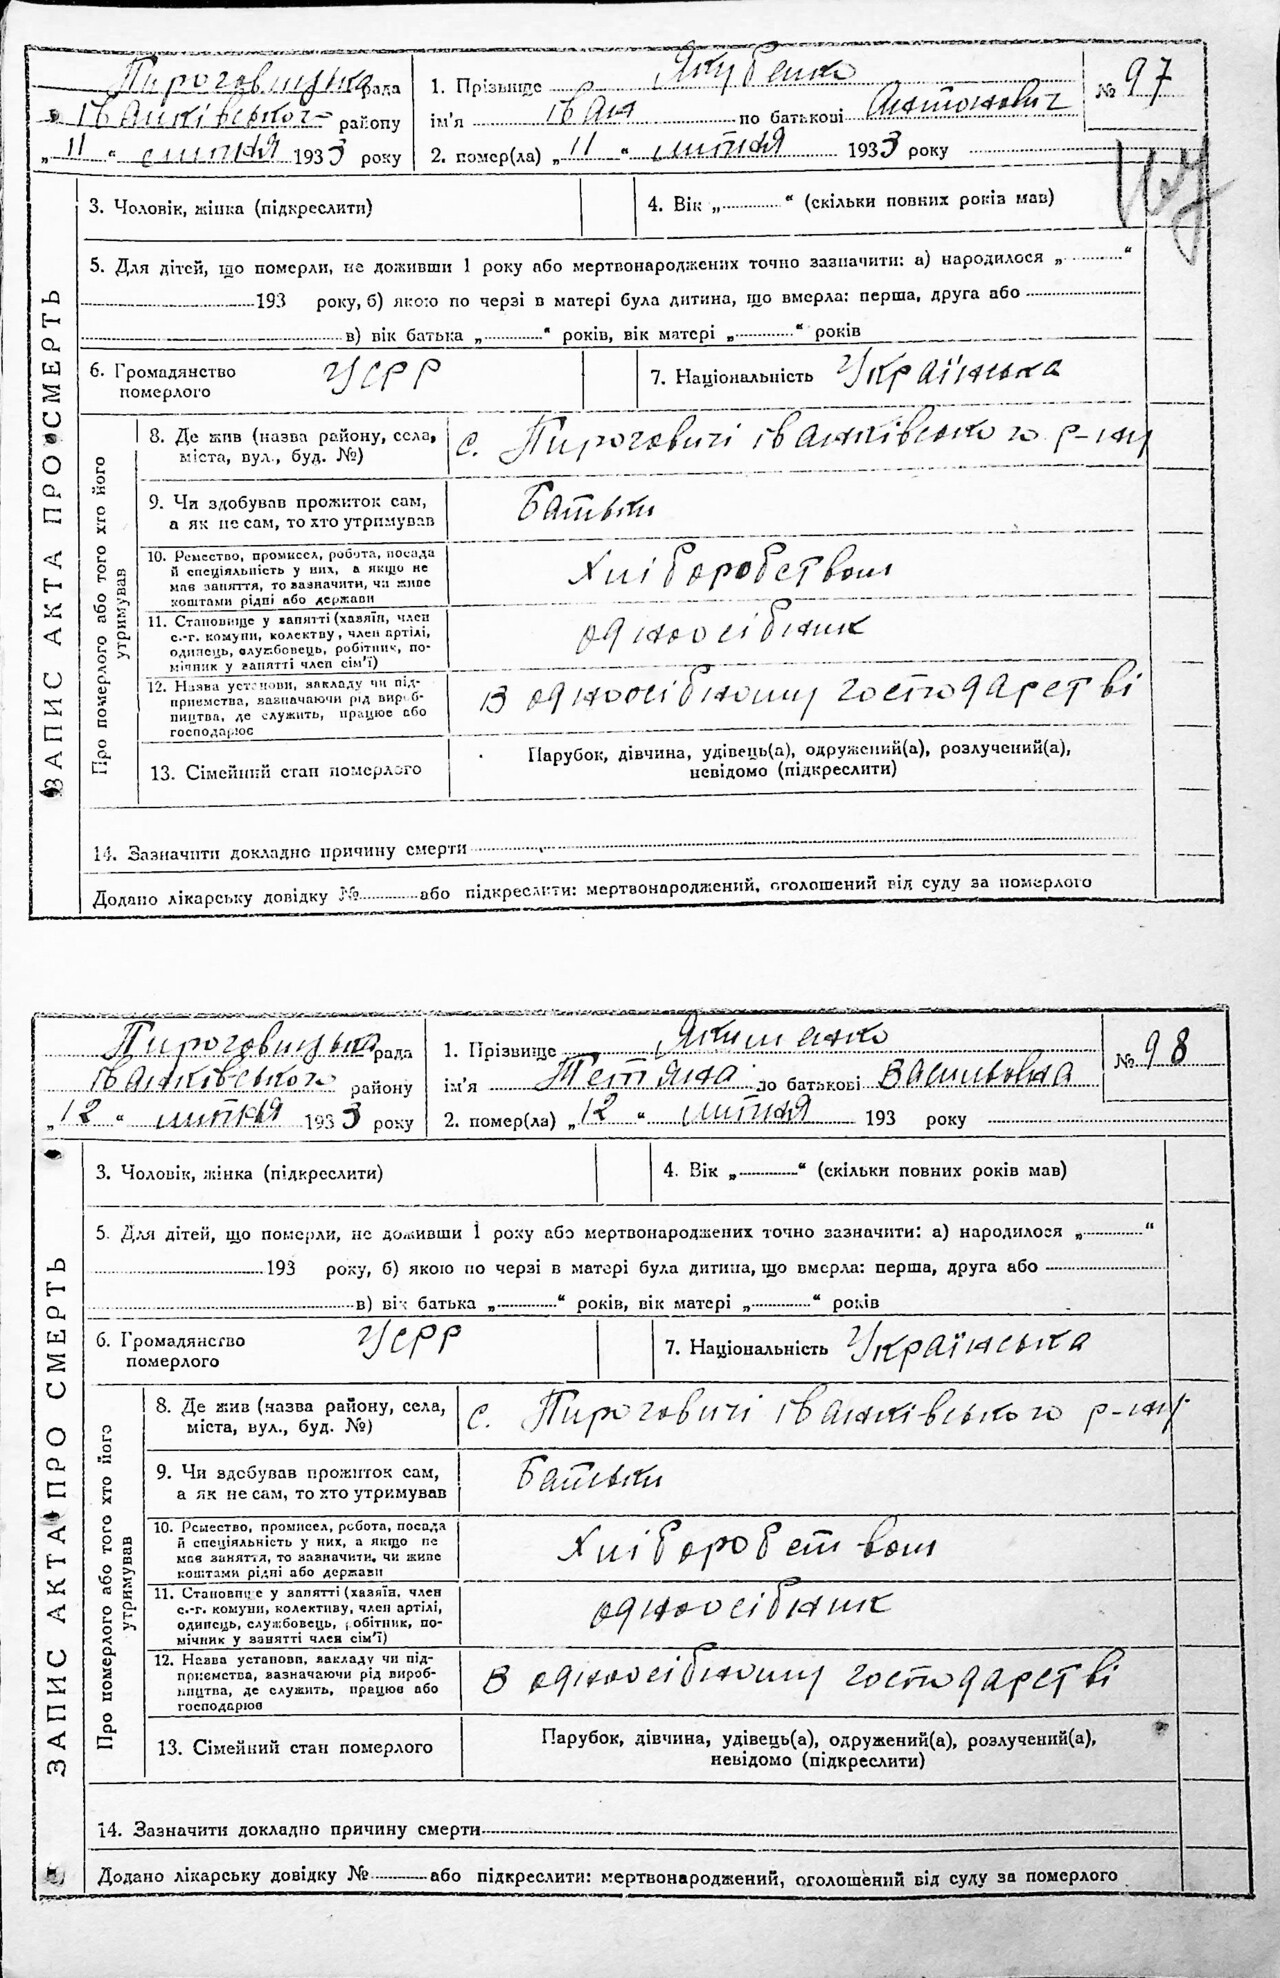 Пироговицька рада
в Іванківського району
„11“ липня 1933 року
1. Прізвище Якубенко
ім'я Іван по батькові Антонович
2. помер(ла) „11“ липня 1933 року
№ 97
3. Чоловік, жінка (підкреслити)
4. Вік „ “ (скільки повних років мав)
5. Для дітей, що померли, не доживши 1 року або мертвонароджених точно зазначити: а) народилося „ “
193 року, б) якою по черзі в матері була дитина, що вмерла: перша, друга або
в) вік батька „ “ років, вік матері „ “ років
6. Громадянство УСРР
померлого
7. Національність Українська
ЗАПИС АКТА ПРО СМЕРТЬ
Про померлого або того хто його
утримував
8. Де жив (назва району, села,
міста, вул., буд. №)
с. Пироговичі Іванківського р-ну
9. Чи здобував прожиток сам,
а як не сам, то хто утримував
Батьки
10. Ремество, промисел, робота, посада
й спеціяльність у них, а якщо не
мав заняття, то зазначити, чи живе
коштами рідні або держави
Хліборобством
11. Становище у занятті (хазяїн, член
с.-г. комуни, колективу, член артілі,
одинець, службовець, робітник, по-
мічник у занятті член сім'ї)
одноосібник
12. Назва установи, закладу чи під-
приємства, зазначаючи рід вироб-
ництва, де служить, працює або
господарює
В одноосібному господарстві
13. Сімейний стан померлого
Парубок, дівчина, удівець(а), одружений(а), розлучений(а),
невідомо (підкреслити)
14. Зазначити докладно причину смерти
Додано лікарську довідку № або підкреслити: мертвонароджений, оголошений від суду за померлого
Пироговицька рада
Іванківського району
„12“ липня 1933 року
1. Прізвище Якименко
ім'я Тетяна по батькові Васильовна
2. помер(ла) „12“ липня 193 року
№ 98
3. Чоловік, жінка (підкреслити)
4. Вік „ “ (скільки повних років мав)
5. Для дітей, що померли, не доживши 1 року або мертвонароджених точно зазначити: а) народилося „ “
193 року, б) якою по черзі в матері була дитина, що вмерла: перша, друга або
в) вік батька „ “ років, вік матері „ “ років
6. Громадянство УСРР
померлого
7. Національність Українська
ЗАПИС АКТА ПРО СМЕРТЬ
Про померлого або того хто його
утримував
8. Де жив (назва району, села,
міста, вул., буд. №)
с. Пироговичі Іванківського р-ну
9. Чи здобував прожиток сам,
а як не сам, то хто утримував
Батьки
10. Ремество, промисел, робота, посада
й спеціяльність у них, а якщо не
мав заняття, то зазначити, чи живе
коштами рідні або держави
Хліборобством
11. Становище у занятті (хазяїн, член
с.-г. комуни, колективу, член артілі,
одинець, службовець, робітник, по-
мічник у занятті член сім'ї)
одноосібник
12. Назва установи, закладу чи під-
приємства, зазначаючи рід вироб-
ництва, де служить, працює або
господарює
В одноосібному господарстві
13. Сімейний стан померлого
Парубок, дівчина, удівець(а), одружений(а), розлучений(а),
невідомо (підкреслити)
14. Зазначити докладно причину смерти
Додано лікарську довідку № або підкреслити: мертвонароджений, оголошений від суду за померлого